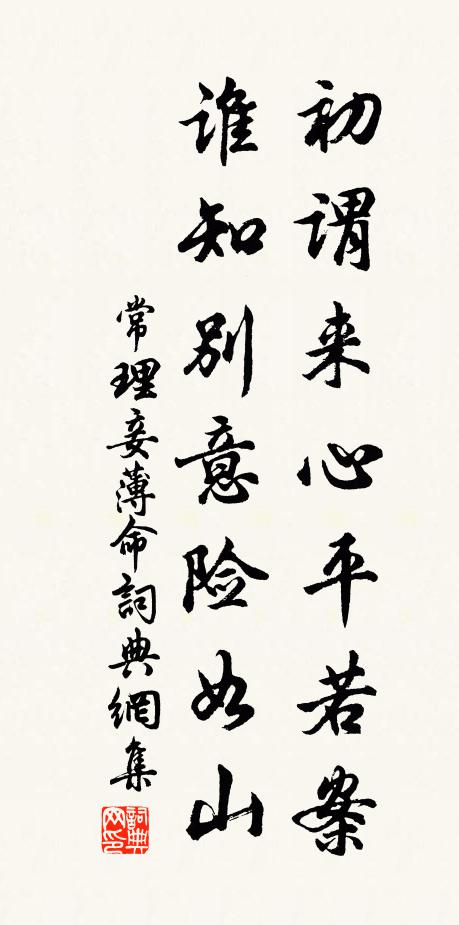 初謂来心平若案
谁知别意险如山
常理妾薄命詞典網集
詞典网印